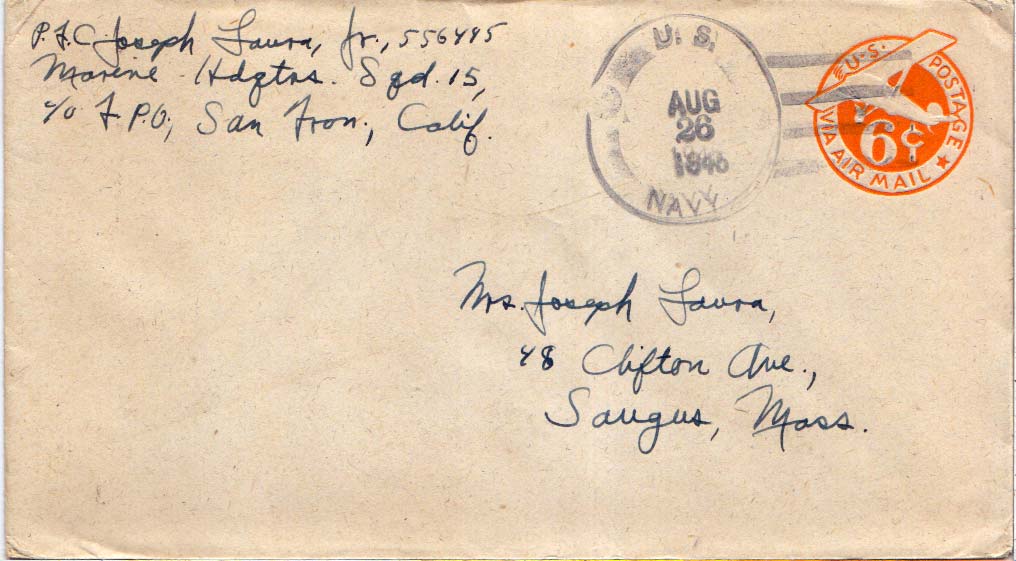 P.F.C. Joseph Laura, Jr., 556495
Marine Hdqtrs. Sqd. 15,
c/o F.P.O., San Fran., Calif.
U. S.
AUG
26
NAVY
U.S. POSTAGE
6¢
VIA AIR MAIL
Mrs. Joseph Laura,
48 Clifton Ave.,
Saugus, Mass.